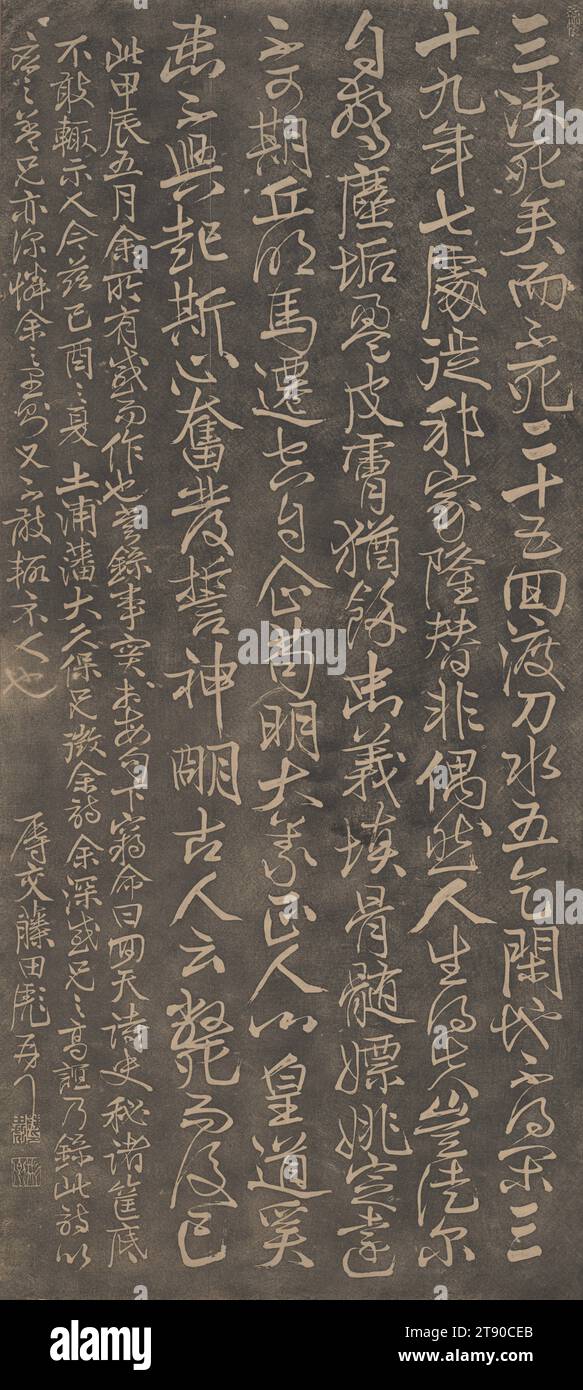 三決死矣而不死二十五回渡刀水五乞閑地不得閑三
十九年七處徙邦家隆替非偶然人生得失豈徒爾
自驚塵垢盈皮膚猶餘忠義填骨髓嫖姚定遠
不可期丘明馬遷空自企苟明大義正人心皇道奚
患不興起斯心奮發誓神明古人云斃而後已
此甲辰五月余所有感而作也嘗錄事實於每句下竊命曰回天詩史秘諸筐底
不敢輙示人今茲己酉之夏 土浦藩大久保兄徵余詩余深感兄之高誼乃錄此詩以
應之蓋兄亦深憐余之則又不敢輙示人也
辱交藤田彪
alamy
alamy
Image ID: 2T90CEB
www.alamy.com